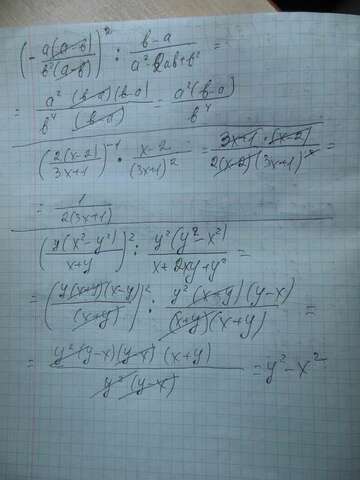 (- a(a-b) / b²(a-b))² : b-a / a²-2ab+b² =
= a² (b-a)(b-a) / b⁴ (b-a) = a²(b-a) / b⁴
(2(x-2) / 3x+1)⁻¹ · x-2 / (3x+1)² = 3x+1 · (x-2) / 2(x-2)(3x+1)² =
= 1 / 2(3x+1)
(y(x²-y²) / x+y)² : y²(y²-x²) / x+2xy+y² =
= (y(x+y)(x-y) / (x+y))² : y²(x+y)(y-x) / (x+y)(x+y) =
= y²(y-x)(y-x)(x+y) / y²(y-x) = y²-x²